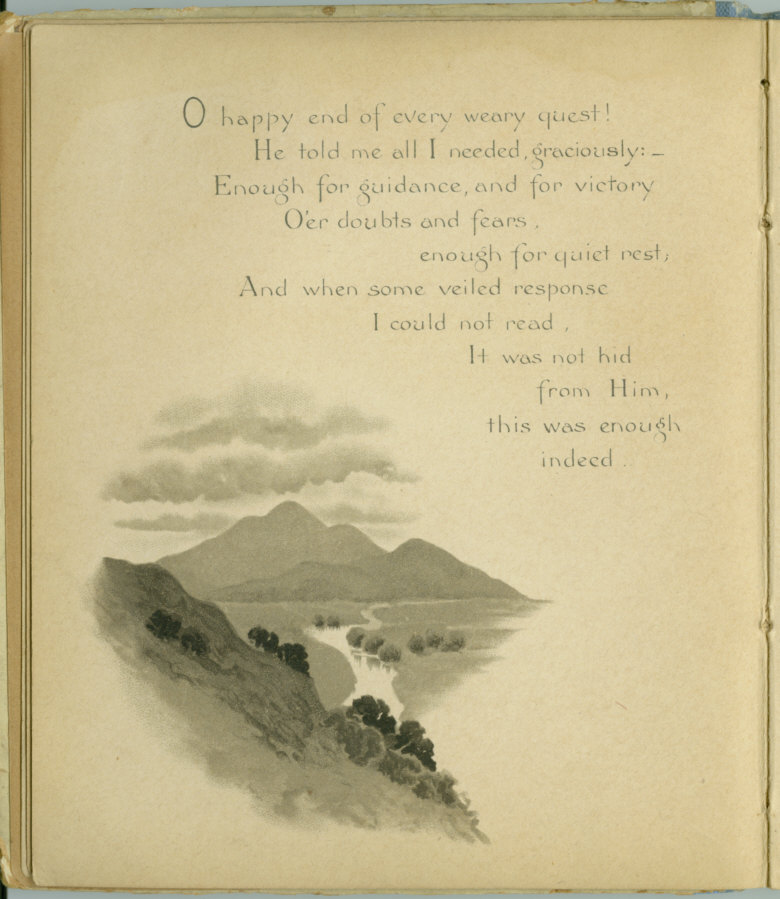 O happy end of every weary quest!
He told me all I needed, graciously:–
Enough for guidance, and for victory
O'er doubts and fears,
enough for quiet rest;
And when some veiled response
I could not read,
It was not hid
from Him,
this was enough
indeed.